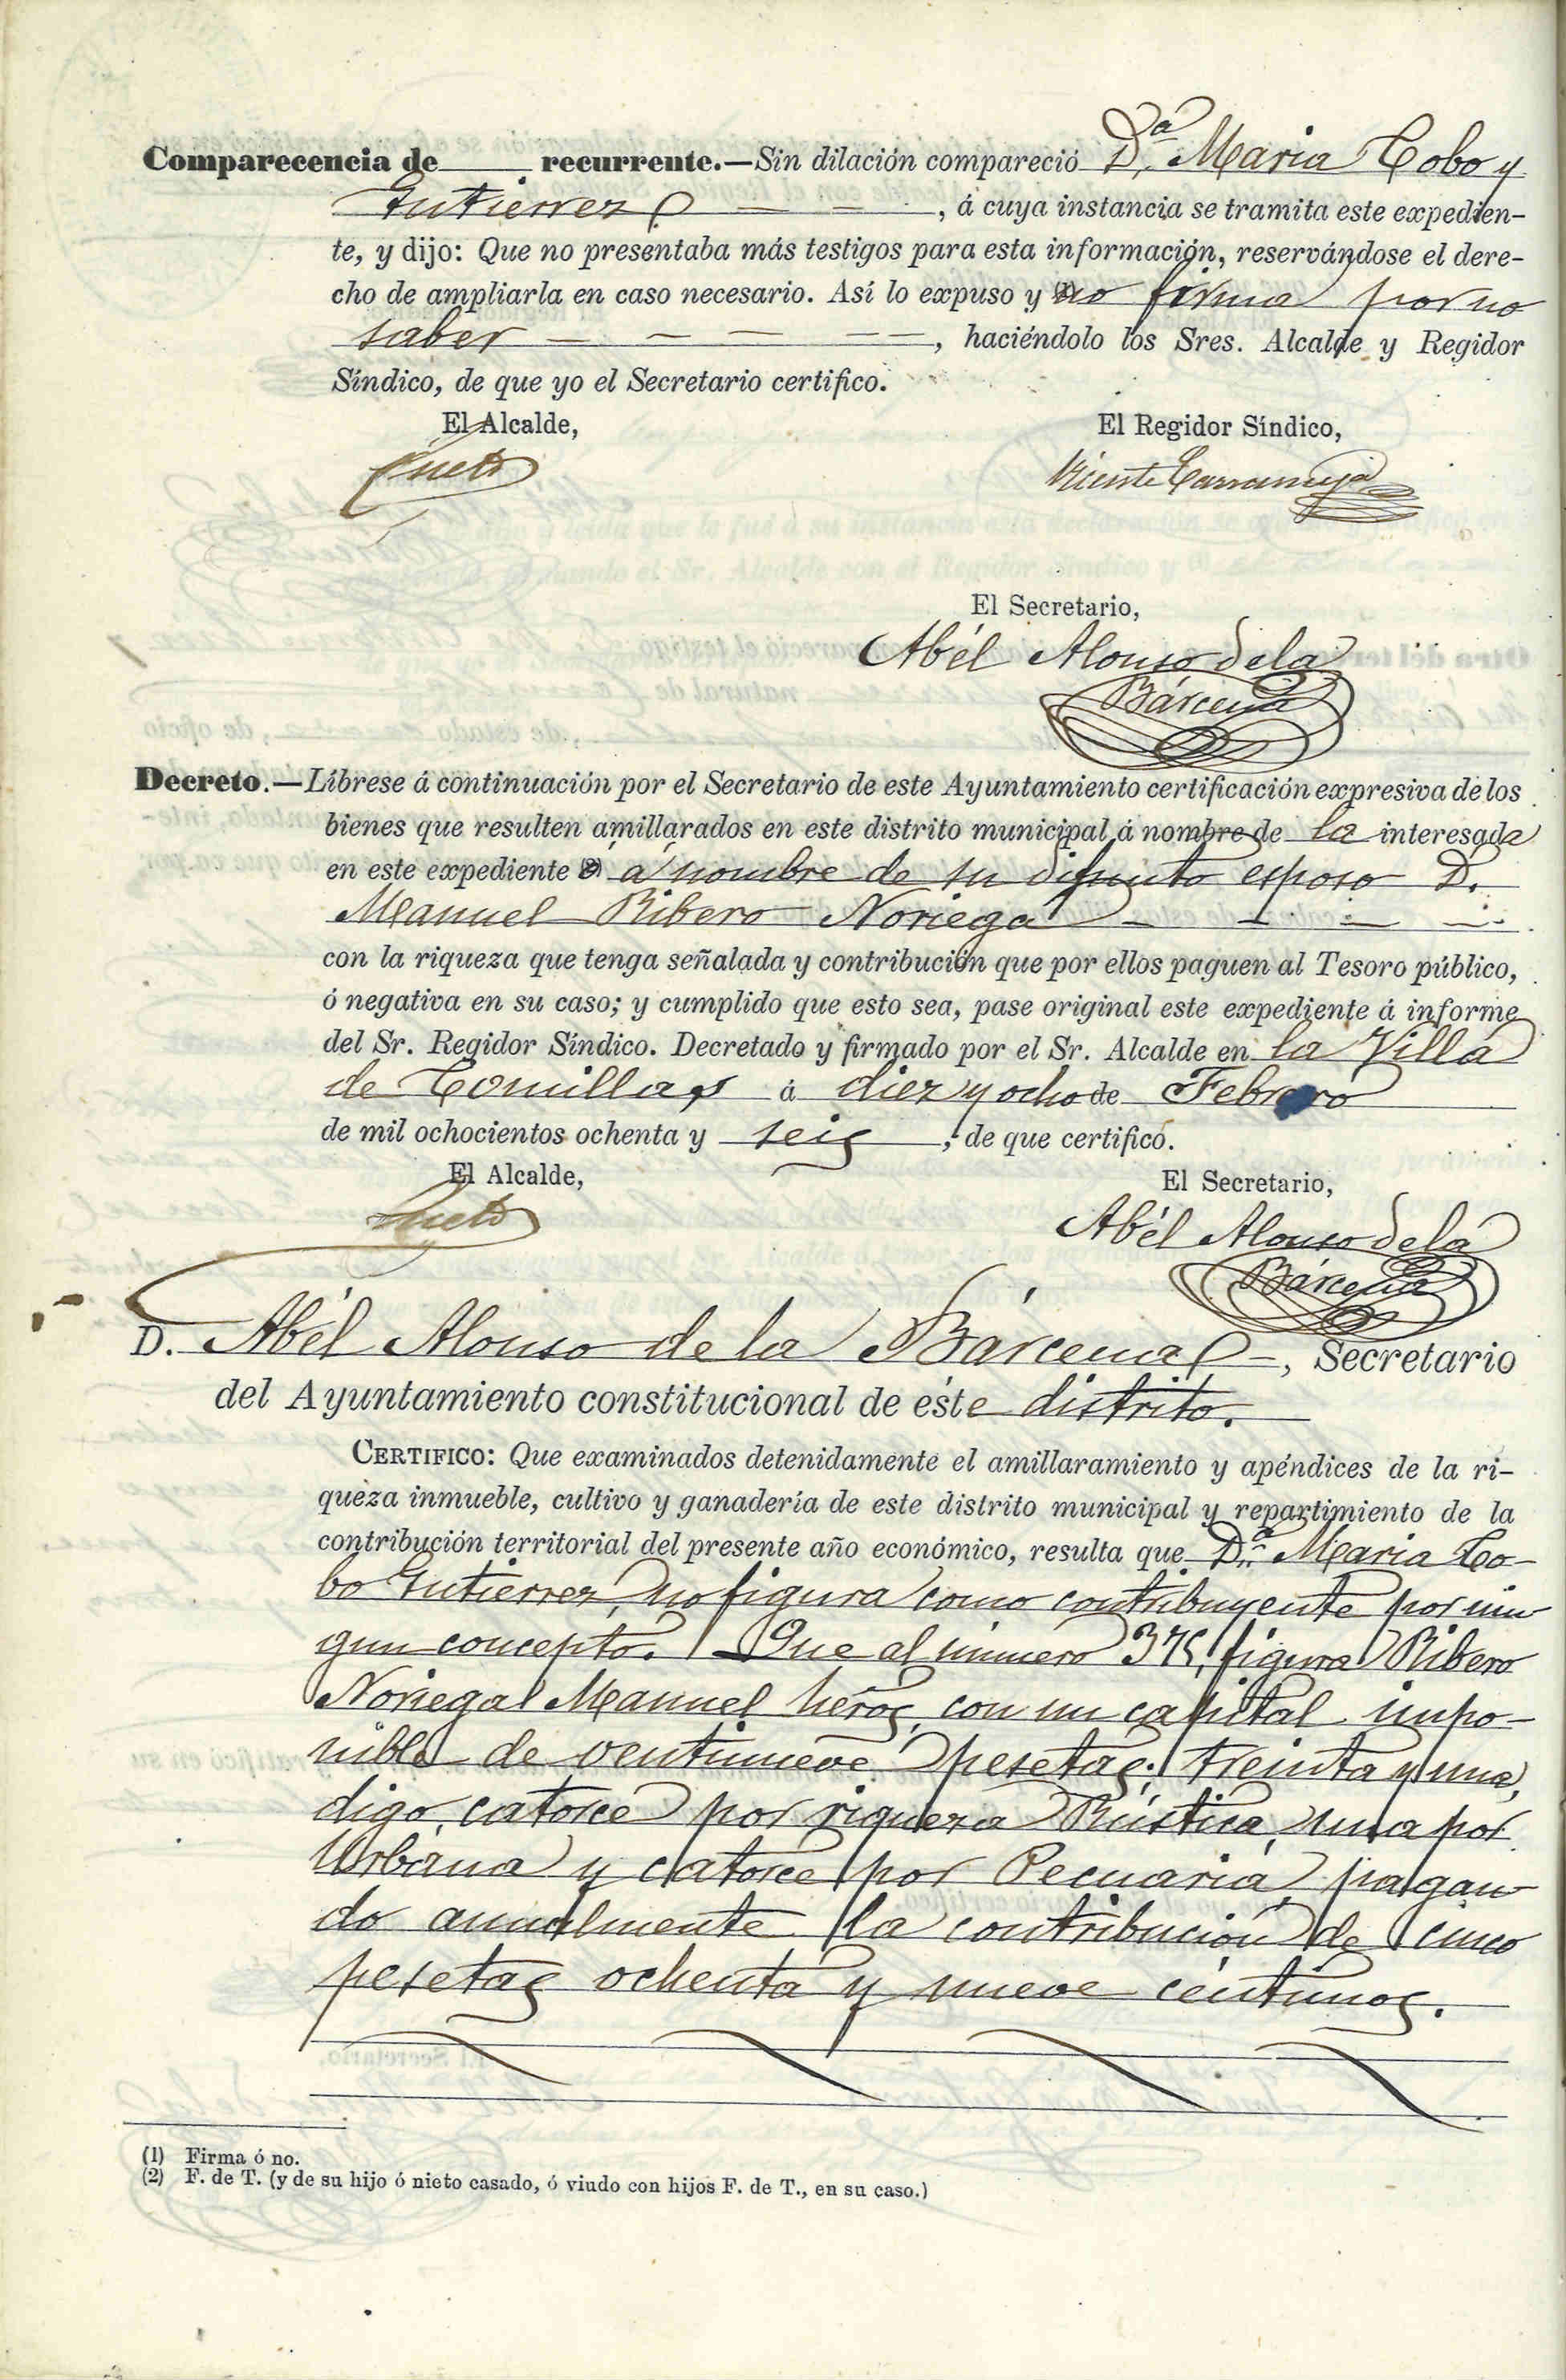 Comparecencia de ____ recurrente.—Sin dilación compareció Dª. Maria Cobo y
Gutierrez — —, á cuya instancia se tramita este expedien-
te, y dijo: Que no presentaba más testigos para esta información, reservándose el dere-
cho de ampliarla en caso necesario. Así lo expuso y (1) no firma por no
saber — — — — —, haciéndolo los Sres. Alcalde y Regidor
Síndico, de que yo el Secretario certifico.
El Alcalde,
El Regidor Síndico,
Cueto
Vicente
El Secretario,
Abél Alonso de la
Bárcena
Decreto.—Líbrese á continuación por el Secretario de este Ayuntamiento certificación expresiva de los
bienes que resulten amillarados en este distrito municipal á nombre de la interesada
en este expediente (2) á nombre de su difunto esposo D.
Manuel Ribero Noriega — — — —
con la riqueza que tenga señalada y contribución que por ellos paguen al Tesoro público,
ó negativa en su caso; y cumplido que esto sea, pase original este expediente á informe
del Sr. Regidor Síndico. Decretado y firmado por el Sr. Alcalde en la Villa
de Comillas á diez y ocho de Febrero
de mil ochocientos ochenta y seis, de que certifico.
El Alcalde,
El Secretario,
Cueto
Abél Alonso de la
Bárcena
D. Abél Alonso de la Bárcena —, Secretario
del Ayuntamiento constitucional de éste distrito.
CERTIFICO: Que examinados detenidamente el amillaramiento y apéndices de la ri-
queza inmueble, cultivo y ganadería de este distrito municipal y repartimiento de la
contribución territorial del presente año económico, resulta que Dª. Maria Co-
bo Gutierrez, no figura como contribuyente por nin
gun concepto. Que al número 375, figura Ribero
Noriega Manuel heros, con un capital impo-
nible de ventinueve pesetas; treinta y una,
digo, catorce por riqueza Rústica, una por
Urbana y catorce por Pecuaria, pagan-
do anualmente la contribución de cinco
pesetas ochenta y nueve céntimos.
(1) Firma ó no.
(2) F. de T. (y de su hijo ó nieto casado, ó viudo con hijos F. de T., en su caso.)